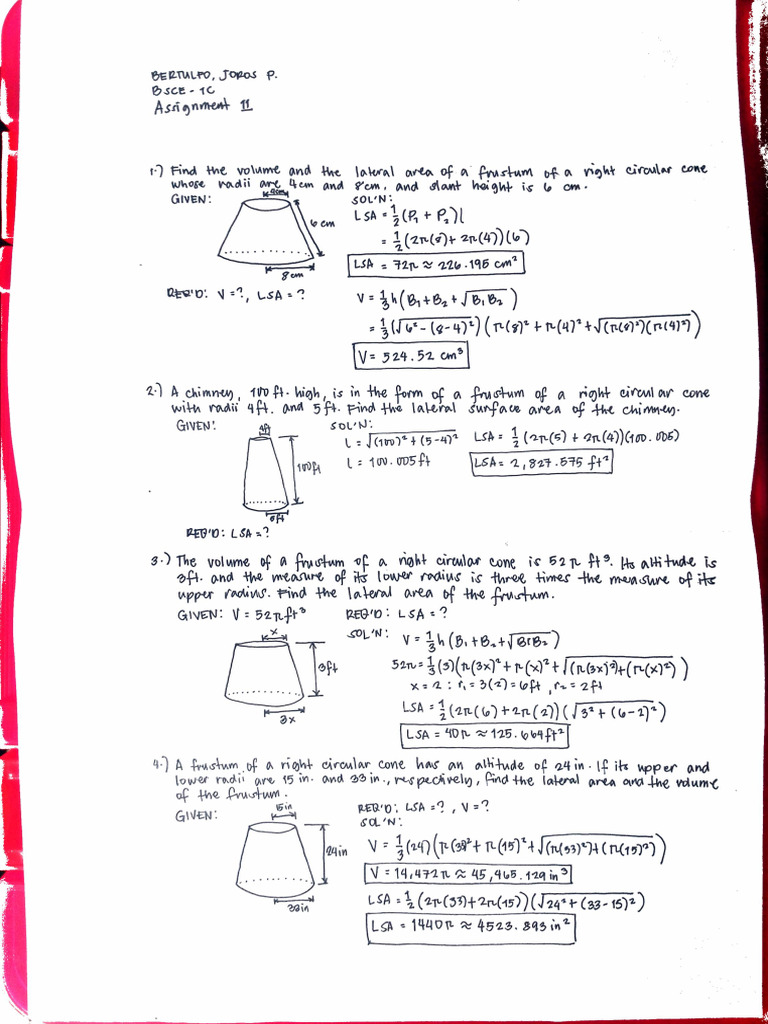 BERTULFO, JOROS P.
BSCE - 1C
Assignment 11
1.) Find the volume and the lateral area of a frustum of a right circular cone
whose radii are 4cm and 8cm, and slant height is 6 cm.
GIVEN:
4cm
6 cm
8cm
SOL'N:
LSA = 1/2 (P₁ + P₂)l
= 1/2 (2π(8) + 2π(4))(6)
LSA = 72π ≈ 226.195 cm²
REQ'D: V = ?, LSA = ?
V = 1/3 h (B₁ + B₂ + √B₁B₂)
= 1/3 (√6² - (8-4)²) (π(8)² + π(4)² + √(π(8)²)(π(4)²))
V = 524.52 cm³
2.) A chimney, 100 ft. high, is in the form of a frustum of a right circular cone
with radii 4ft. and 5ft. Find the lateral surface area of the chimney.
GIVEN:
4ft
100ft
5ft
SOL'N:
l = √(100)² + (5-4)²
l = 100.005ft
LSA = 1/2 (2π(5) + 2π(4))(100.005)
LSA = 2,827.575 ft²
REQ'D: LSA = ?
3.) The volume of a frustum of a right circular cone is 52π ft³. Its altitude is
3ft. and the measure of its lower radius is three times the measure of its
upper radius. Find the lateral area of the frustum.
GIVEN: V = 52π ft³
REQ'D: LSA = ?
x
3ft
3x
SOL'N:
V = 1/3 h (B₁ + B₂ + √B₁B₂)
52π = 1/3 (3)(π(3x)² + π(x)² + √(π(3x)²)+(π(x)²))
x = 2 : r₁ = 3(2) = 6ft, r₂ = 2ft
LSA = 1/2 (2π(6) + 2π(2)) (√3² + (6-2)²)
LSA = 40π ≈ 125.664ft²
4.) A frustum of a right circular cone has an altitude of 24 in. If its upper and
lower radii are 15 in. and 33 in., respectively, find the lateral area and the volume
of the frustum.
GIVEN:
15in
24in
33in
REQ'D: LSA = ?, V = ?
SOL'N:
V = 1/3 (24) (π(33)² + π(15)² + √(π(33)²)+(π(15)²))
V = 14,472π ≈ 45,465.129 in³
LSA = 1/2 (2π(33) + 2π(15)) (√24² + (33-15)²)
LSA = 1440π ≈ 4523.893 in²